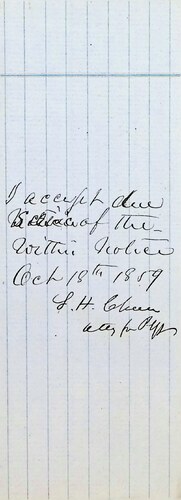 I accept due
Service of the
Within Notice
Oct 18th 1859
L. H.
atty for Plff